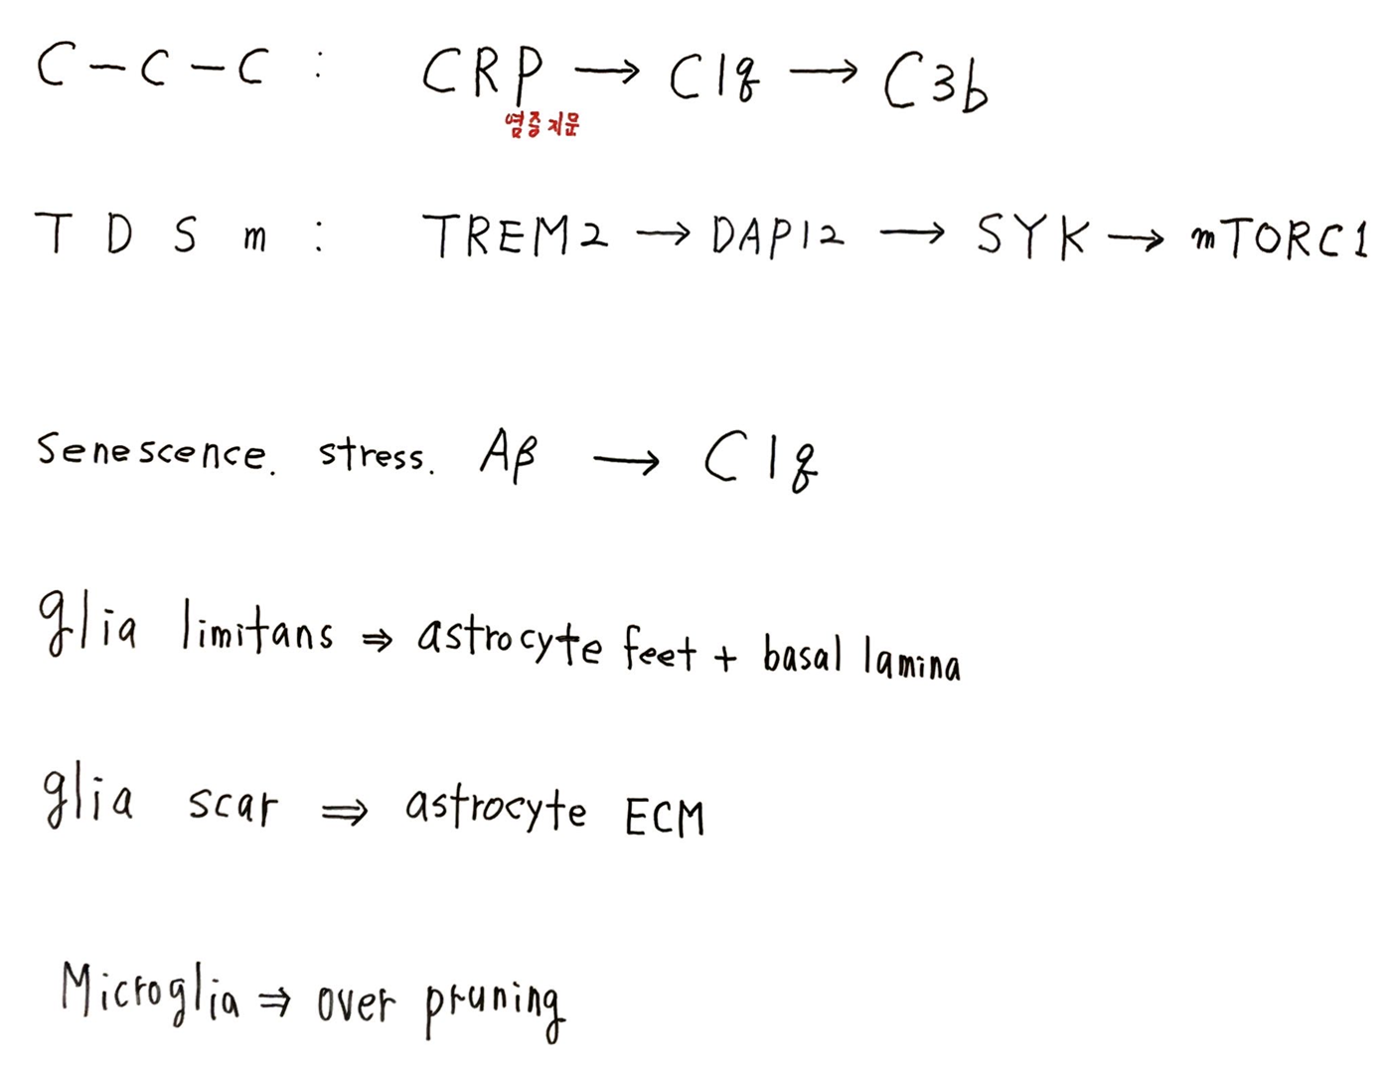 C - C - C : CRP → C1q → C3b
염증지문
T D S m : TREM2 → DAP12 → SYK → mTORC1
Senescence. stress. Aβ → C1q
glia limitans ⇒ astrocyte feet + basal lamina
glia scar ⇒ astrocyte ECM
Microglia ⇒ over pruning